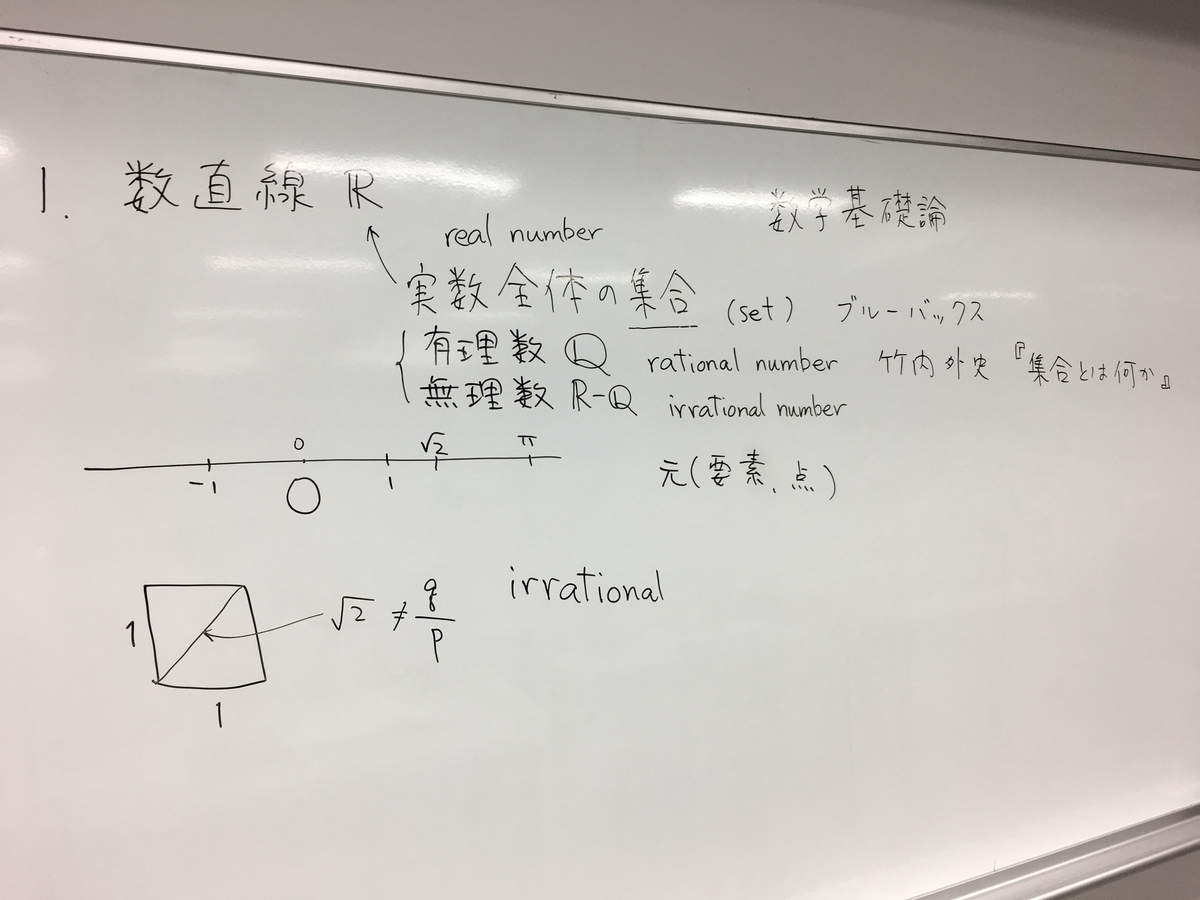 1. 数直線 ℝ
数学基礎論
real number
実数全体の集合 (set) ブルーバックス
有理数 ℚ rational number 竹内外史『集合とは何か』
無理数 ℝ-ℚ irrational number
0 √2 π
-1 O 1
元(要素、点)
1 √2 ≠ q/p irrational
1